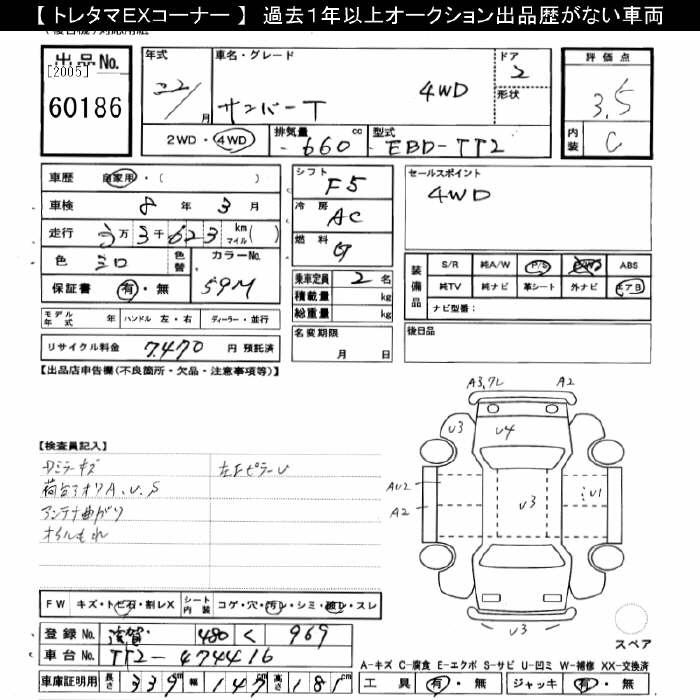 【 トレタマEXコーナー 】 過去1年以上オークション出品歴がない車両
出品No.
[2005]
60186
年式
22/ 月
車名・グレード
サンバーT 4WD
ドア 2
形状
2WD・4WD
排気量 660 cc
型式 EBD-TT2
評価点
3.5
内装 C
車歴 自家用・( )
車検 8 年 3 月
走行 万 3千 623 km マイル( )
色 シロ 色替
カラーNo. 59M
保証書 有・無
モデル年式 年 ハンドル 左・右 ディーラー・並行
リサイクル料金 7.470 円 預託済
シフト F5
冷房 AC
燃料 G
乗車定員 2 名
積載量 kg
総重量 kg
名変期限
月 日
セールスポイント
4WD
装備品
S/R 純A/W P/S P/W ABS
純TV 純ナビ 革シート 外ナビ エアB
ナビ型番:
後日品
【出品店申告欄(不良箇所・欠品・注意事項等)】
【検査員記入】
Dミラーキズ 左FピラーU
荷台アオリA、U、S
アンテナ曲がり
オイルもれ
A3,7L A2
U3 U4
AU2 U3 U1
A2
U3
スペア
FW キズ・トビ石・割レX シート内装 コゲ・穴・汚レ・シミ・破レ・スレ
登録No. 滋賀 480 く 969
車台No. TT2-474416
車庫証明用 長さ 339cm 幅 147cm 高さ 181cm
A-キズ C-腐食 E-エクボ S-サビ U-凹ミ W-補修 XX-交換済
工具 有・無 ジャッキ 有・無